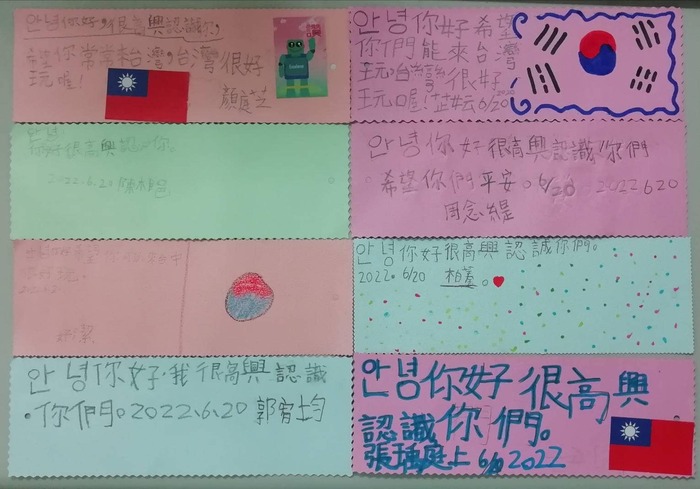 안녕你好,很高興認識你,
希望你常常來台灣,台灣很好
玩喔!
顏庭芝
안녕你好希望
你們能來台灣,
玩,台灣很好
玩喔!芷妘6/20 2022
안녕
你好很高興認識你。
2022.6.20
안녕你好很高興認識你們
希望你們平安。6/20 2022 620
周念緹
안녕你好很高興認誠你們。
2022。6/20 柏蓁。
안녕你好,我很高興認識
你們。2022、6、20 郭宥均
안녕你好很高興
認識你們。
張瑀庭上6/20 2022